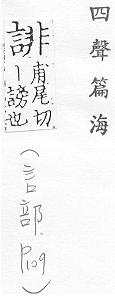 四聲篇海
誹甫尾切
丨謗也
(言部.P109)